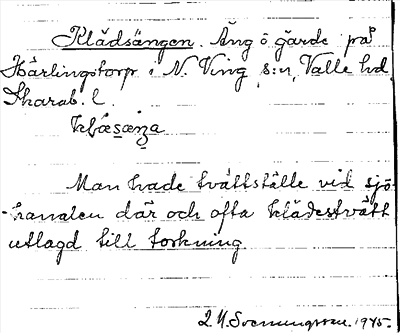 Klädsängen. Äng o gärde på
Härlingstorp i N. Ving s:n, Valle hd,
Skarab. l.
Man hade tvättställe vid sjö-
-kanalen där och ofta klädestvätt
utlagd till torkning
1945.